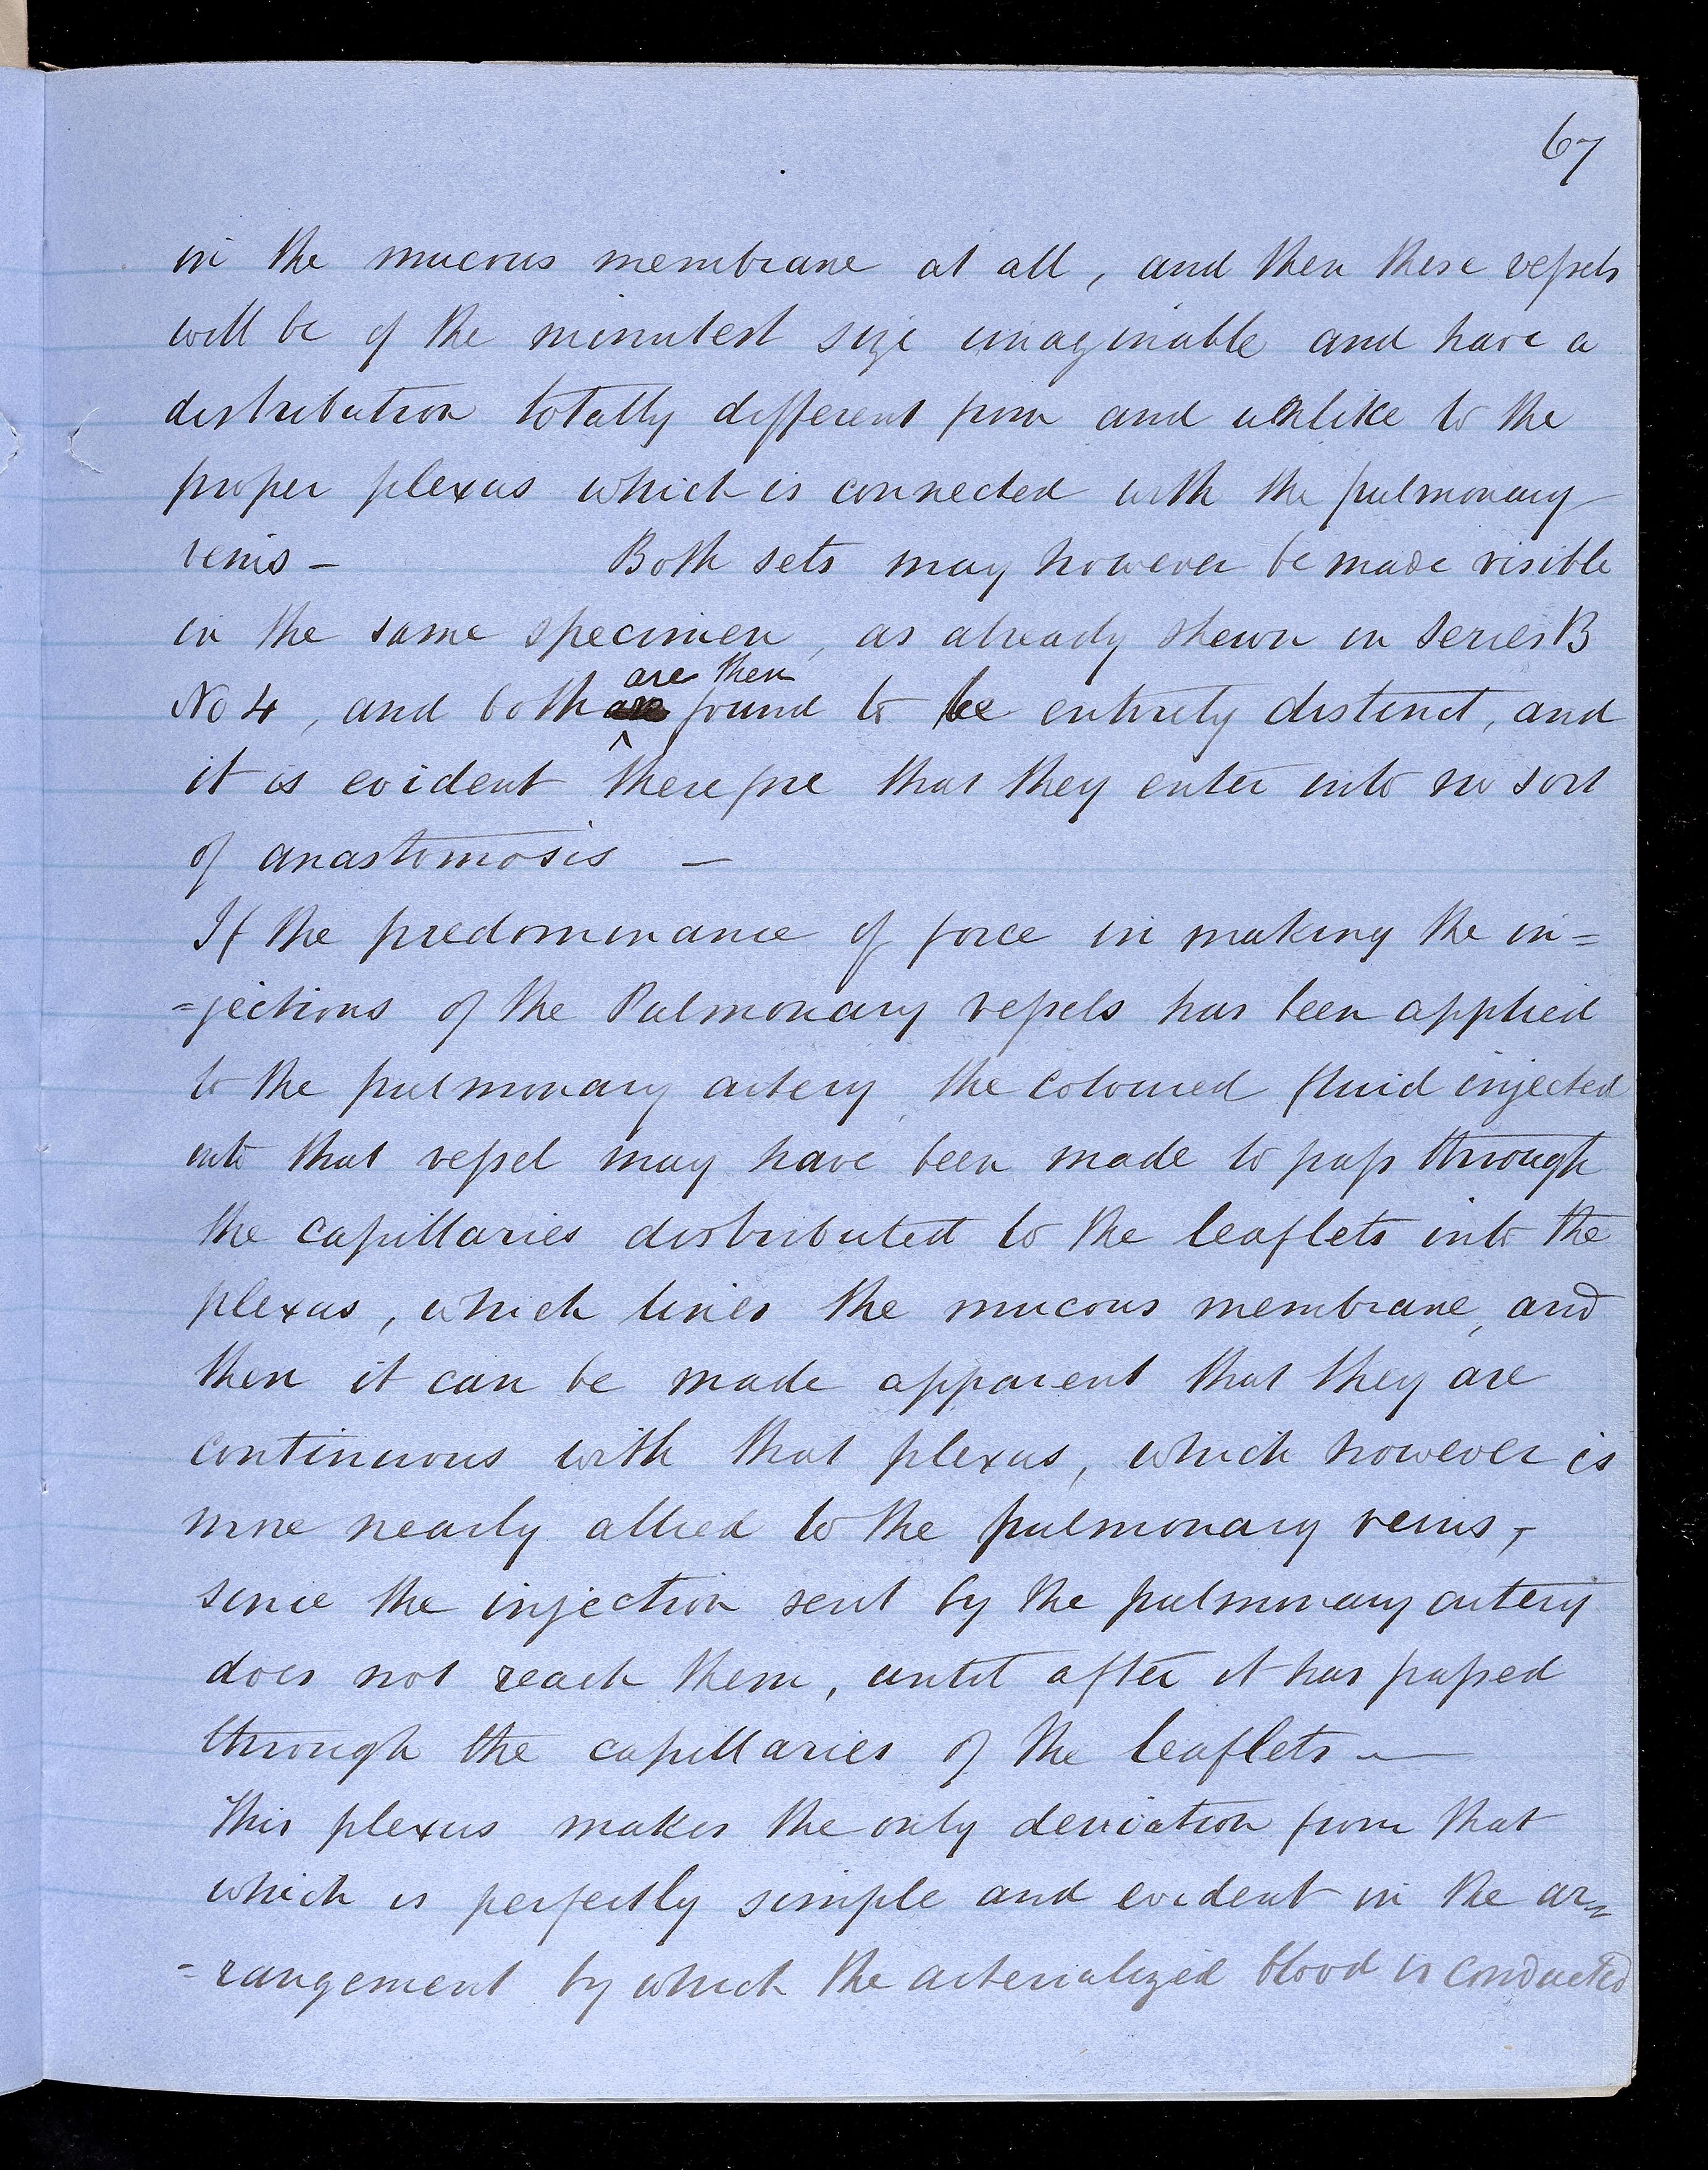 67
in the mucous membrane at all, and then these vessels
will be of the minutest size imaginable and have a
distribution totally different from and unlike to the
proper plexus which is connected with the pulmonary
veins — Both sets may however be made visible
in the same specimen, as already shewn in Series B
are then
No 4, and both found to be entirely distinct, and
it is evident therefore that they enter into no sort
of anastomosis —
If the predominance of force in making the in=
=jections of the Pulmonary vessels has been applied
to the pulmonary artery, the coloured fluid injected
into that vessel may have been made to pass through
the capillaries distributed to the leaflets into the
plexus, which lines the mucous membrane, and
then it can be made apparent that they are
continuous with that plexus, which however is
more nearly allied to the pulmonary veins,
since the injection sent by the pulmonary artery
does not reach them, until after it has passed
through the capillaries of the leaflets —
This plexus makes the only deviation from that
which is perfectly simple and evident in the ar=
=rangement by which the arterialized blood is conducted